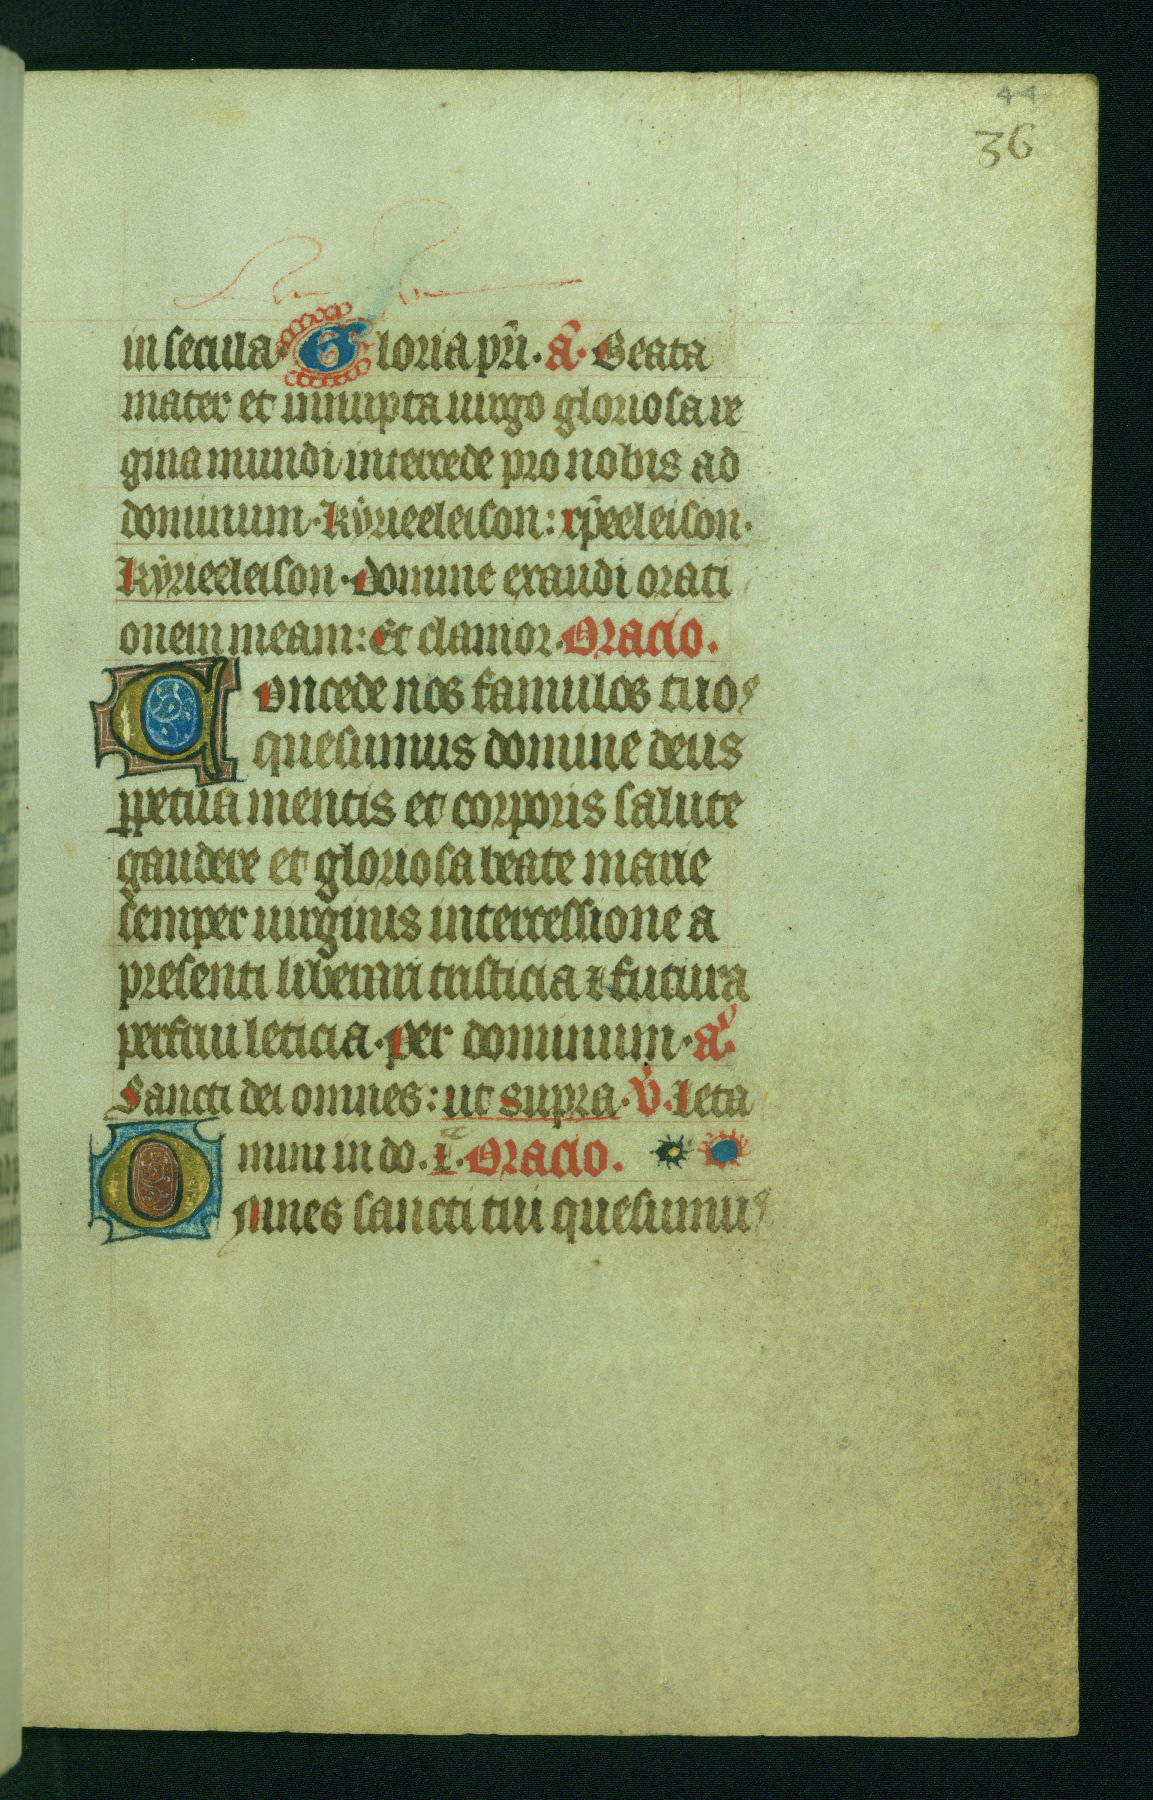 44
36
in secula· Gloria pr̄i· a͞· Beata
mater et innupta uirgo gloriosa re
gina mundi intercede pro nobis ad
dominum· kÿrieeleison: xp̄eeleison·
kÿrieeleison· domine exaudi orati
onem meam: Et clamor· Oracio.
Concede nos famulos tuos
quesumus domine deus
ꝑpetua mentis et corporis salute
gaudere et gloriosa beate marie
semper uirginis intercessione a
presenti liberari tristicia ⁊ futura
perfrui leticia· per dominum· a͞.
Sancti dei omnes: ut supra· v̄. Leta
mini in do. ⁊c̄· Oracio.
Omnes sancti tui quesumus